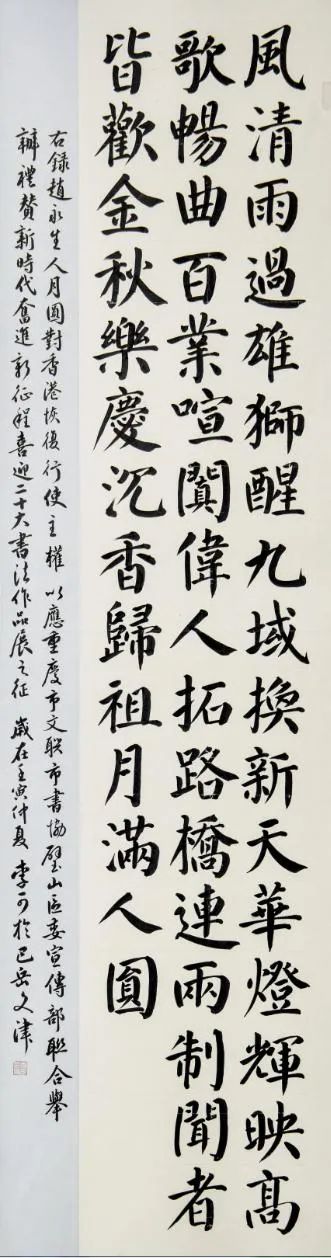 風清雨過雄獅醒九域換新天華燈輝映高
歌暢曲百業喧闐偉人拓路橋連兩制聞者
皆歡金秋樂慶沉香歸祖月滿人圓
右録趙永生人月圓對香港恢復行使主權以應重慶市文联市書協璧山區委宣傳部联合舉
辦禮贊新時代奮進新征程喜迎二十大書法作品展之征 歲在壬寅仲夏 李可於巴岳文津